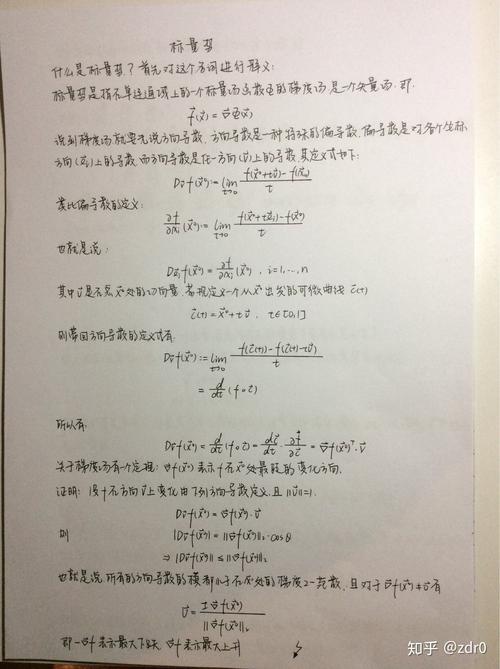 标量势
什么是标量势?首先对这个名词进行释义:
标量势是指在单连通域上的一个标量场函数Φ的梯度场是一个矢量场.即.
f⃗(x⃗)=∇Φ(x⃗)
说到梯度场就要先说方向导数.方向导数是一种特殊的偏导数.偏导数是对各个坐标
方向(x⃗ᵢ)上的导数,而方向导数是任一方向(v⃗)上的导数.其定义式如下:
Dv⃗f(x⃗⁰):=lim t→0 (f(x⃗⁰+tv⃗)-f(x⃗⁰))/t
类比偏导数的定义:
∂f/∂xᵢ(x⃗⁰):=lim t→0 (f(x⃗⁰+tx⃗ᵢ)-f(x⃗⁰))/t
也就是说:
Dx⃗ᵢf(x⃗⁰)=∂f/∂xᵢ(x⃗⁰), i=1,...,n
其中v⃗是在点x⃗⁰处的切向量.若规定一个从x⃗⁰出发的可微曲线 c⃗(t)
c⃗(t)=x⃗⁰+tv⃗, t∈[0,1]
则带回方向导数的定义式有.
Dv⃗f(x⃗⁰):=lim t→0 (f(c⃗(t))-f(c⃗(t)-tv⃗))/t
=d/dt(f∘c⃗)
所以有.
Dv⃗f(x⃗⁰)=d/dt(f∘c⃗)=dc⃗/dt·∂f/∂c⃗=∇f(x⃗⁰)ᵀ·v⃗
关于梯度场有一个定理:∇f(x⃗⁰)表示f在x⃗⁰处最陡的变化方向.
证明:设f在方向v⃗上变化由下列方向导数定义.且||v⃗||=1.
Dv⃗f(x⃗⁰)=∇f(x⃗⁰)·v⃗
则 |Dv⃗f(x⃗⁰)|=||∇f(x⃗⁰)||₂·cosθ
⇒|Dv⃗f(x⃗⁰)|≤||∇f(x⃗⁰)||₂
也就是说所有的方向导数的模都小于在x⃗⁰处的梯度2-范数.且对于∇f(x⃗⁰)≠0⃗有
v⃗=±∇f(x⃗⁰)/||∇f(x⃗⁰)||₂
即-∇f表示最大下跌.∇f表示最大上升
知乎 @zdr0